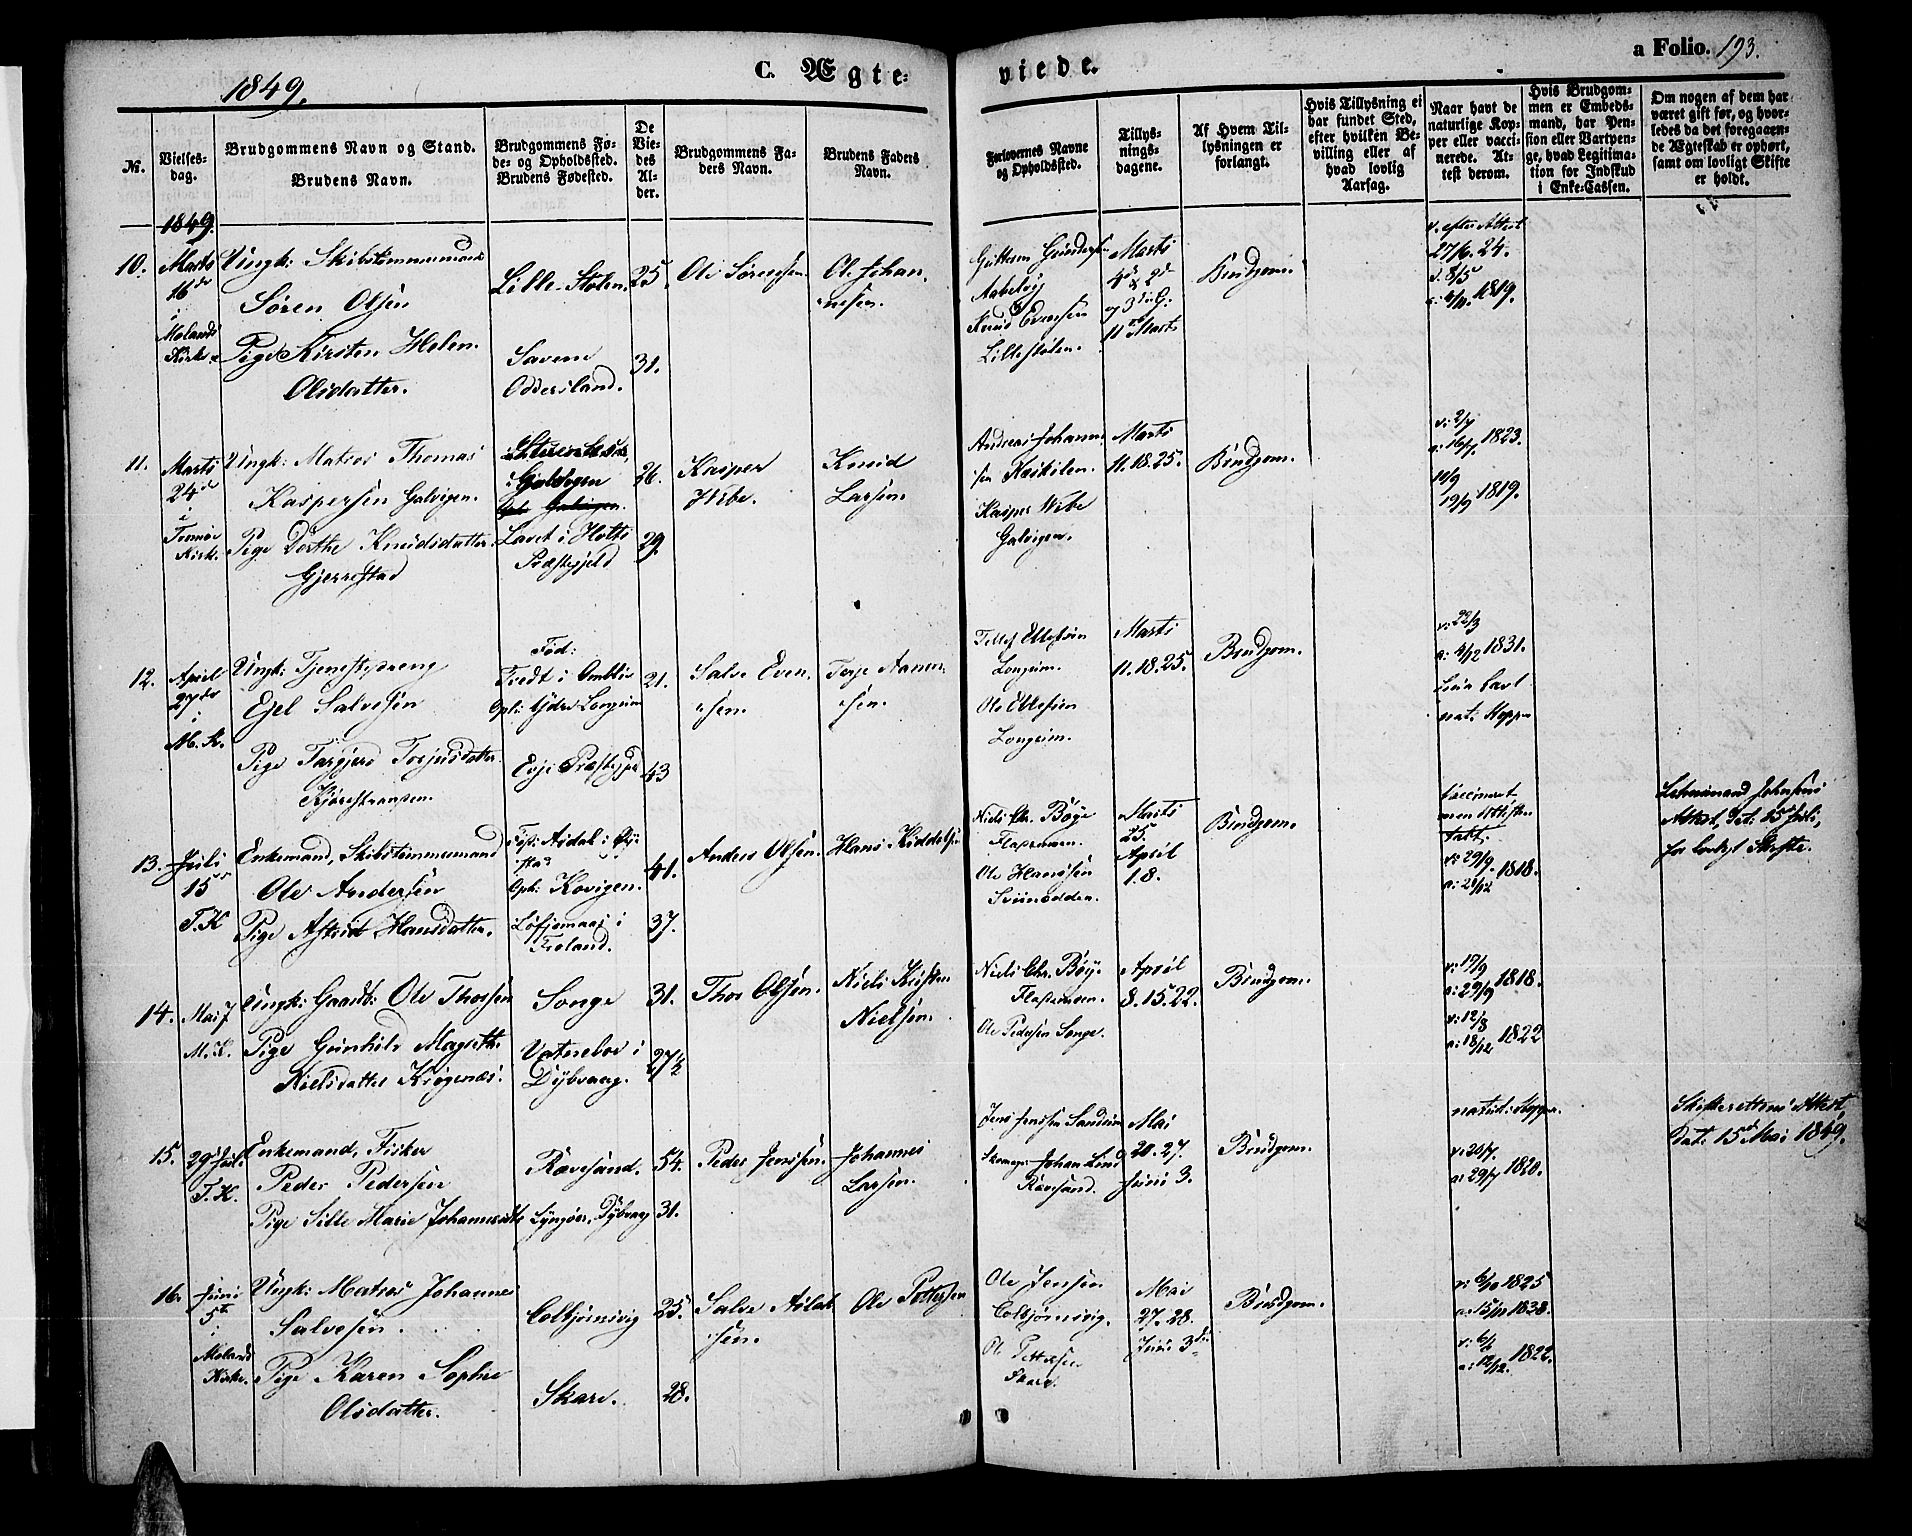 1849.
C. Ægte-
viede.
a Folio. 193.
No.
Vielses-
dag.
Brudgommens Navn og Stand.
Brudens Navn.
Brudgommens Fø-
de- og Opholdssted.
Brudens Fødested.
De
Vie-
des
Al-
der.
Brudgommens Fa-
ders Navn.
Brudens Faders
Navn.
Forlovernes Navne
og Opholdssted.
Tillys-
nings-
dagene.
Af Hvem Til-
lysningen er
forlangt.
Hvis Tillysning ei
har fundet Sted,
efter hvilken Be-
villing eller af
hvad lovlig
Aarsag.
Naar havt de
naturlige Kop-
per eller vacci-
nerede. At-
test derom.
Hvis Brudgom-
men er Embeds-
mand, har Pen-
sion eller Vartpen-
ge, hvad Legitima-
tion for Indskud
i Enke-Cassen.
Om nogen af dem har
været gift før, og hvor-
ledes da det foregaaen-
de Ægteskab er ophørt,
samt om lovligt Skifte
er holdt.
1849.
10.
Marts
16de
i
Molands
Kirke
Ungk: Skibstømmermand
Søren Olsen
Pige Kirsten Helen
Olsdatter.
Lille-Stølen.
Savene
Oddersland.
25.
31.
Ole Sørensen
Ole Johan-
nesen.
Guttorm Gundersen
Knud Evensen
Lillestølen.
Marts
4de & 2de
og 3die G.
11te Marts
Brudgom.
v. efter Attest
27/6. 24.
1819.
11.
Marts
24de
i
Tromøe
Kirk.
Ungk: Matros Thomas
Kaspersen Galvigen.
Pige Dorthe Knudsdatter
Gjerrestad
Galvigen
Lavet i Holts
Præstegjeld
26.
29.
Kasper
Wibe.
Knud
Larsen.
Andreas Johanne-
sen
Kasper Wibe
Galvigen.
Marts
11. 18. 25.
Brudgom.
v: 2/7
a: 16/7 1823.
10/9
19/9 1819.
12.
April
27de
i
M. K.
Ungk: Tjenestedreng
Ejel Salvesen
Pige Torgjerd Torjusdatter
Fød:
Tvedt i Omblie
Evje Præstegjd
21.
43
Salve Even-
sen.
Terje Aanen-
sen.
Tellef Ellefsen
Longum.
Ole Ellefsen
Longum.
Marts
11. 18. 25.
Brudgom.
v: 22/3
a: 4/12 1831.
havt
nat: Kopper
13.
Juli
15
T. K
Enkemand, Skibstømmermand
Ole Andersen
Pige Astrid Hansdatter.
Oph: Kovigen.
i
Froland.
41.
37.
Anders Olsen.
Hans Kiddelsen
Niels Chr. Bøye
Flostemoen.
Ole Hansen
Sviinodden.
Marts
25.
April
1. 8.
Brudgom.
vaccineret
men Attesten
tabt.
v: 29/9.
1818.
Lehnsmand Johnsens
Attest, dat: 15 Juli,
for lovligt Skifte.
14.
Mai 7
M. K.
Ungk: Gaardb: Ole Thorsen
Pige Gunhild Magrethe
Nielsdatter Krøgenæs.
Songe
Vatneboe i
Dybvaag.
31.
27½
Thor Olsen.
Niels Kristen
Nielsen.
Niels Chr. Bøye
Flostemoen.
Ole Pedersen Songe.
April
8. 15. 22.
Brudgom.
v: 17/9
a: 29/9 1818.
v: 12/8
a: 18/12 1822
15.
29de Juli.
T. K.
Enkemand, Fisker
Peder Pedersen
Pige Sille Marie Johannesdtr
Rævesand.
Lyngøer, Dybvaag
54.
31.
Peder Jenssen.
Johannes
Larsen.
Jens Jenssen Sandum
Johan Lind
Rævesand.
Mai
20. 27.
Juni 3.
Brudgom.
naturl: Kopper.
v: 20/7.
a: 29/7 1820.
Skifterettens Attest,
Dat: 15de Mai 1849.
16.
Juni
5te
i
Molands
Kirke.
Ungk: Matros Johannes
Salvesen.
Pige Karen Sophie
Olsdatter.
Colbjørnsvig
Skare.
25.
28.
Salve Aslak-
sen.
Ole Pettersen
Ole Jensen
Colbjørnsvig.
Ole Pettersen
Skare.
Mai
27. 28.
Juni 3die
Brudgom.
v: 6/10 1825
a: 15/10 1838.
v: 6/2
a: 12/12. 1822.